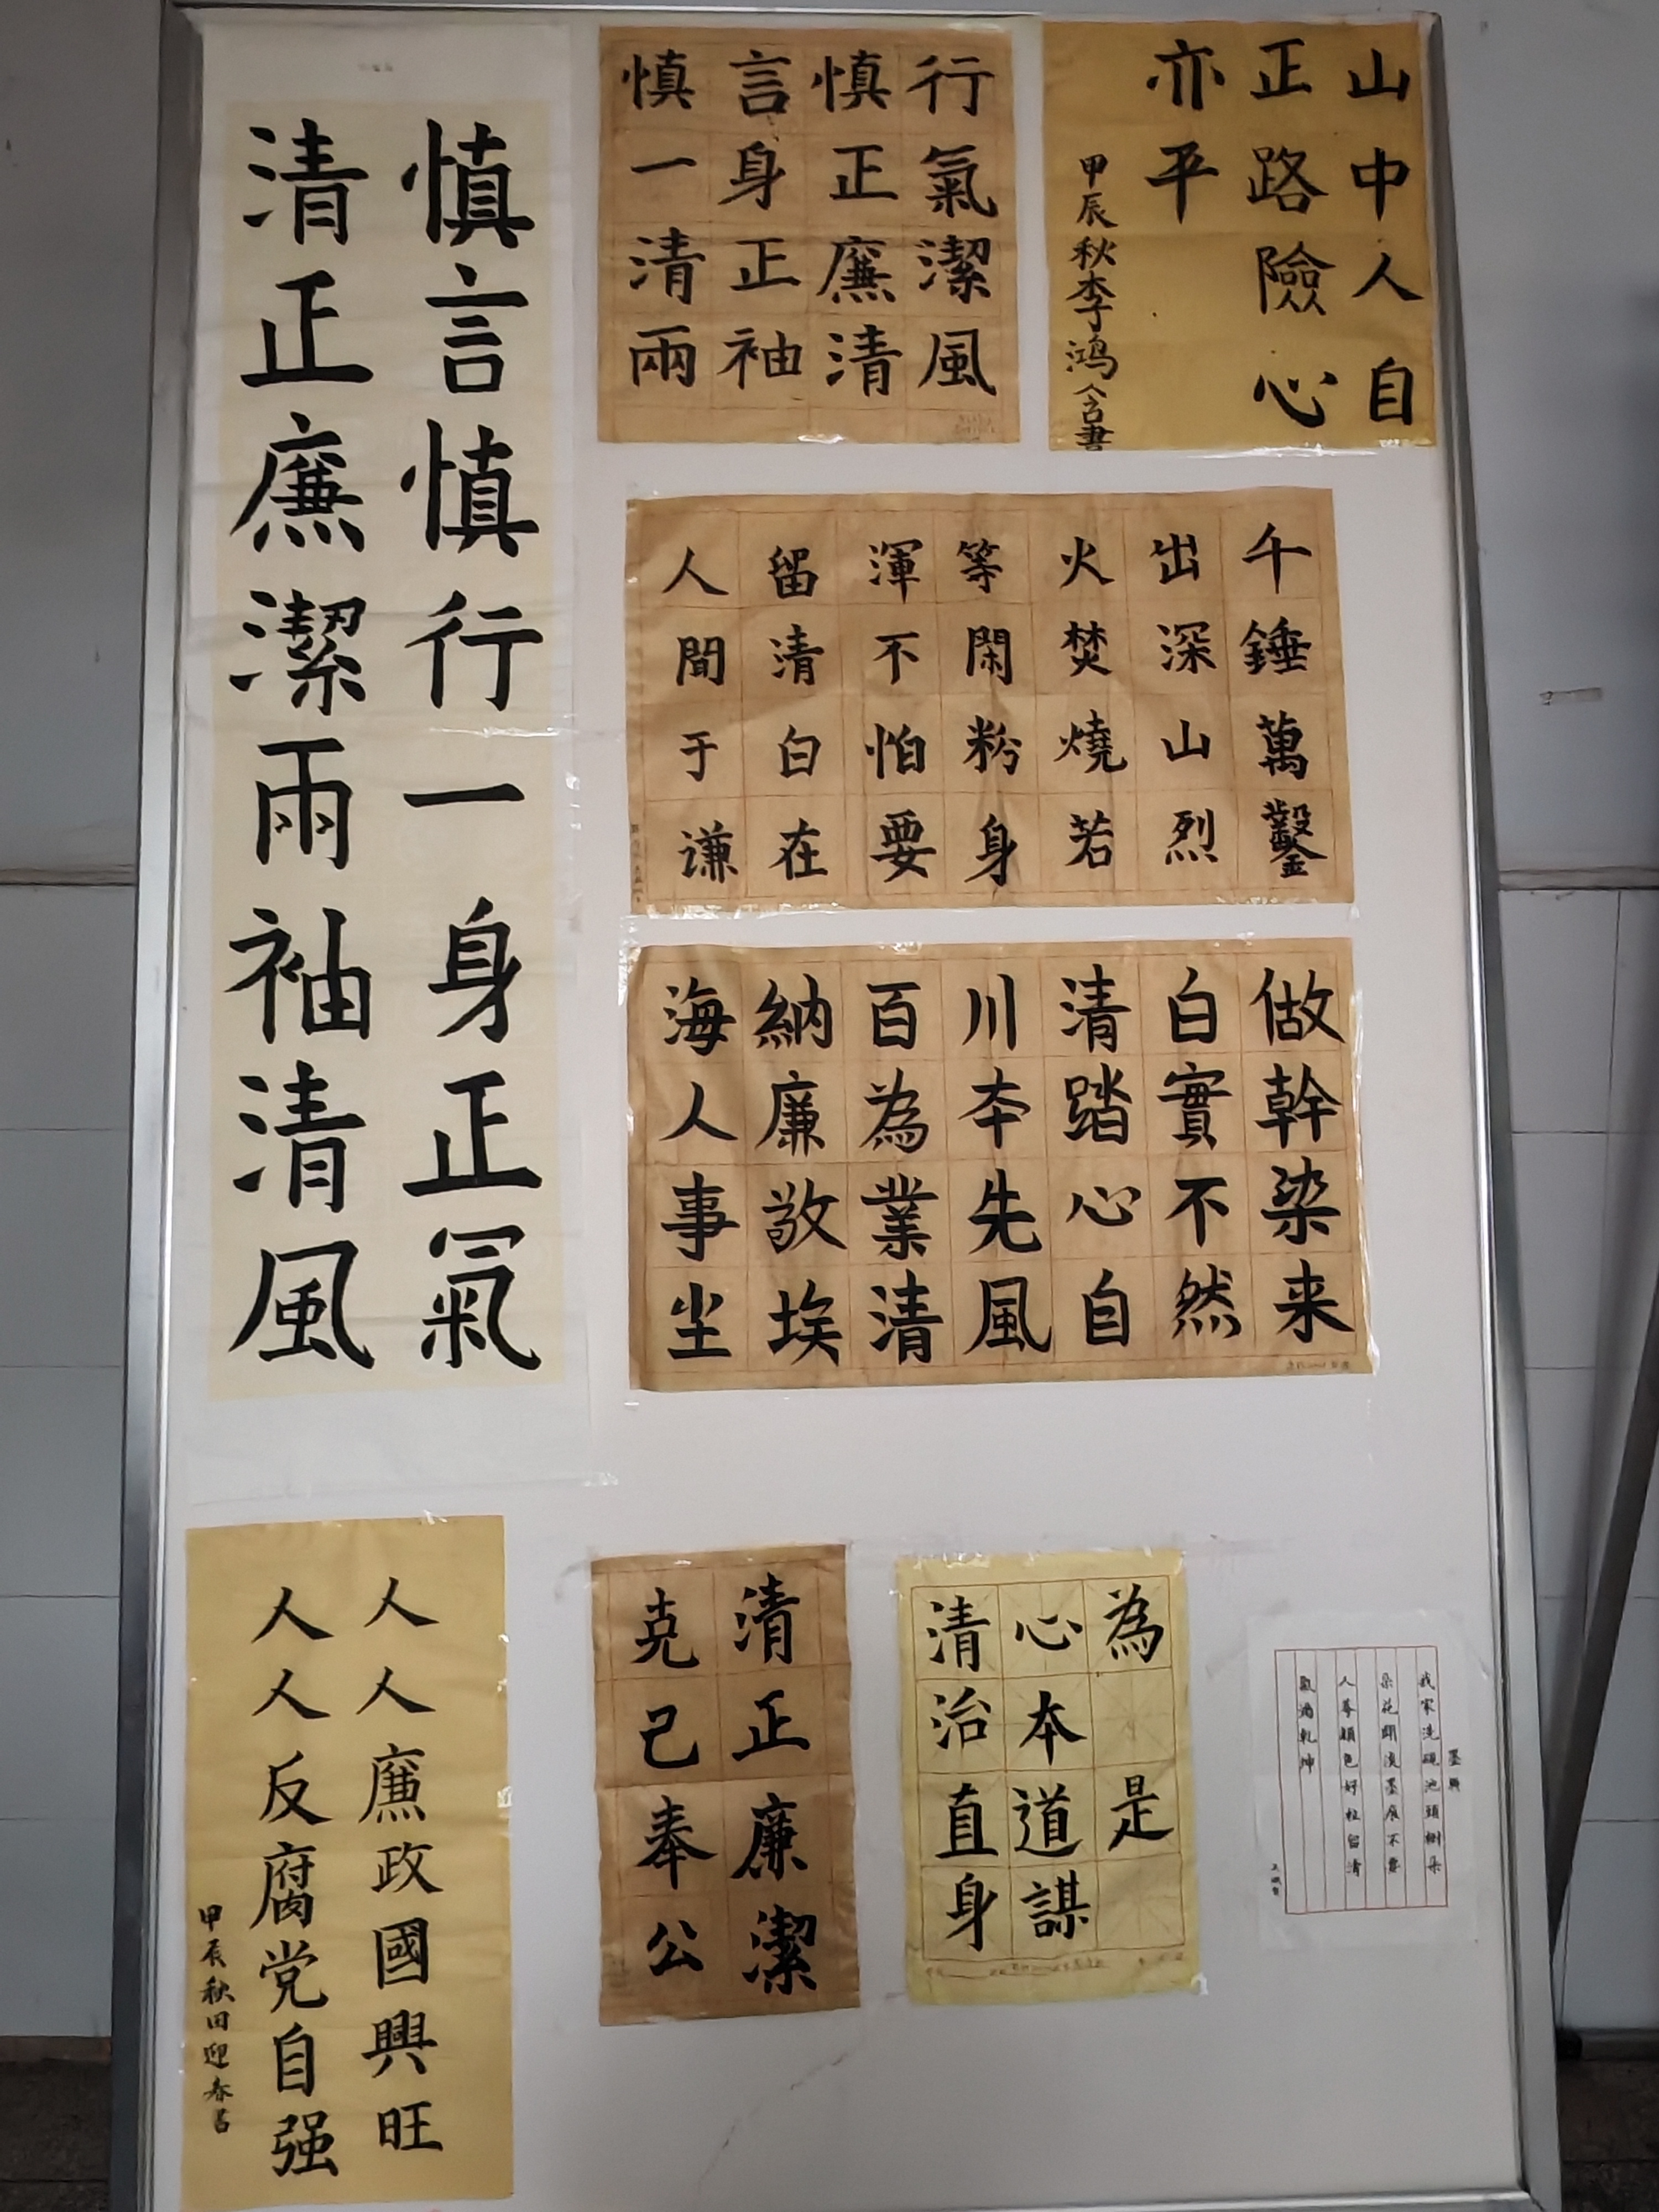 慎言慎行一身正氣
清正廉潔兩袖清風
慎言慎行
一身正氣
清正廉潔
兩袖清風
山中人自
正路險心
亦平
甲辰秋李鸿含書
千錘萬鑿
出深山烈
火焚燒若
等閑粉身
渾不怕要
留清白在
人間于谦
海納百川清白做
人廉為本踏實幹
事敬業先心不染
尘埃清風自然来
人人廉政國興旺
人人反腐党自强
甲辰秋田迎春書
清正廉潔
克己奉公
清心為
治本
直道是
身謀
墨
我家洗硯池頭樹朵
朵花開淡墨痕不要
人夸顏色好祗留清
氣滿乾坤